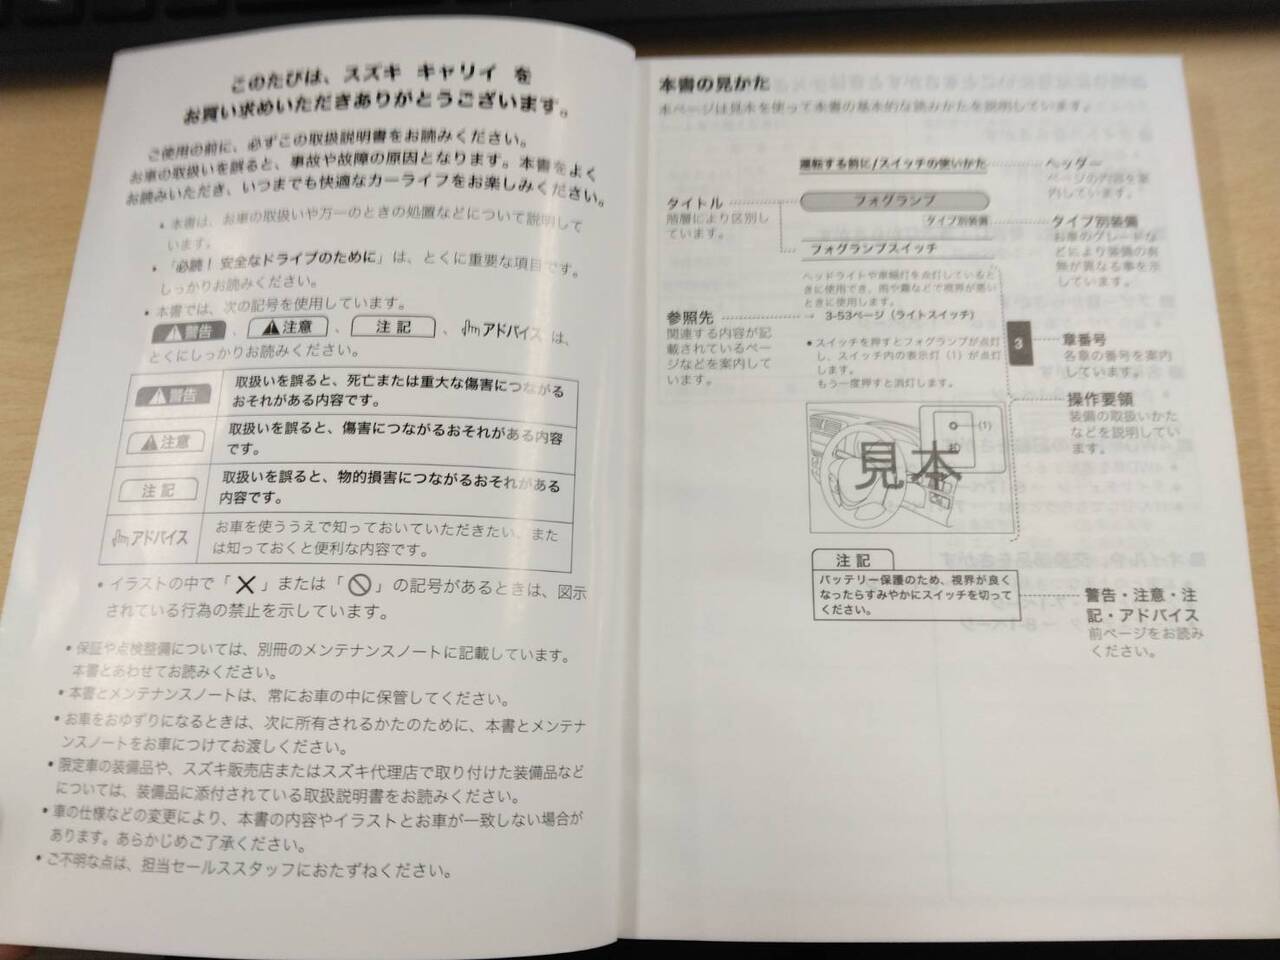 このたびは、スズキ キャリイ を
お買い求めいただきありがとうございます。
ご使用の前に、必ずこの取扱説明書をお読みください。
お車の取扱いを誤ると、事故や故障の原因となります。本書をよく
お読みいただき、いつまでも快適なカーライフをお楽しみください。
• 本書は、お車の取扱いや万一のときの処置などについて説明して
います。
• 「必読！安全なドライブのために」は、とくに重要な項目です。
しっかりお読みください。
• 本書では、次の記号を使用しています。
警告 、 注意 、 注記 、 アドバイス は、
とくにしっかりお読みください。
警告
取扱いを誤ると、死亡または重大な傷害につながる
おそれがある内容です。
注意
取扱いを誤ると、傷害につながるおそれがある内容
です。
注記
取扱いを誤ると、物的損害につながるおそれがある
内容です。
アドバイス
お車を使ううえで知っておいていただきたい、また
は知っておくと便利な内容です。
• イラストの中で「 」または「 」の記号があるときは、図示
されている行為の禁止を示しています。
• 保証や点検整備については、別冊のメンテナンスノートに記載しています。
本書とあわせてお読みください。
• 本書とメンテナンスノートは、常にお車の中に保管してください。
• お車をおゆずりになるときは、次に所有されるかたのために、本書とメンテナ
ンスノートをお車につけてお渡しください。
• 限定車の装備品や、スズキ販売店またはスズキ代理店で取り付けた装備品など
については、装備品に添付されている取扱説明書をお読みください。
• 車の仕様などの変更により、本書の内容やイラストとお車が一致しない場合が
あります。あらかじめご了承ください。
• ご不明な点は、担当セールススタッフにおたずねください。
本書の見かた
本ページは見本を使って本書の基本的な読みかたを説明しています。
運転する前に/スイッチの使いかた
ヘッダー
ページの内容を案
内しています。
タイトル
階層により区別し
ています。
フォグランプ
タイプ別装備
フォグランプスイッチ
タイプ別装備
お車のグレードな
どにより装備の有
無が異なる事を示
しています。
ヘッドライトや車幅灯を点灯していると
きに使用でき、雨や霧などで視界が悪い
ときに使用します。
参照先
関連する内容が記
載されているペー
ジなどを案内して
います。
→ 3-53ページ（ライトスイッチ）
● スイッチを押すとフォグランプが点灯
し、スイッチ内の表示灯（1）が点灯
します。
もう一度押すと消灯します。
3
章番号
各章の番号を案内
しています。
操作要領
装備の取扱いかた
などを説明してい
ます。
(1)
見本
注記
バッテリー保護のため、視界が良く
なったらすみやかにスイッチを切って
ください。
警告・注意・注
記・アドバイス
前ページをお読み
ください。